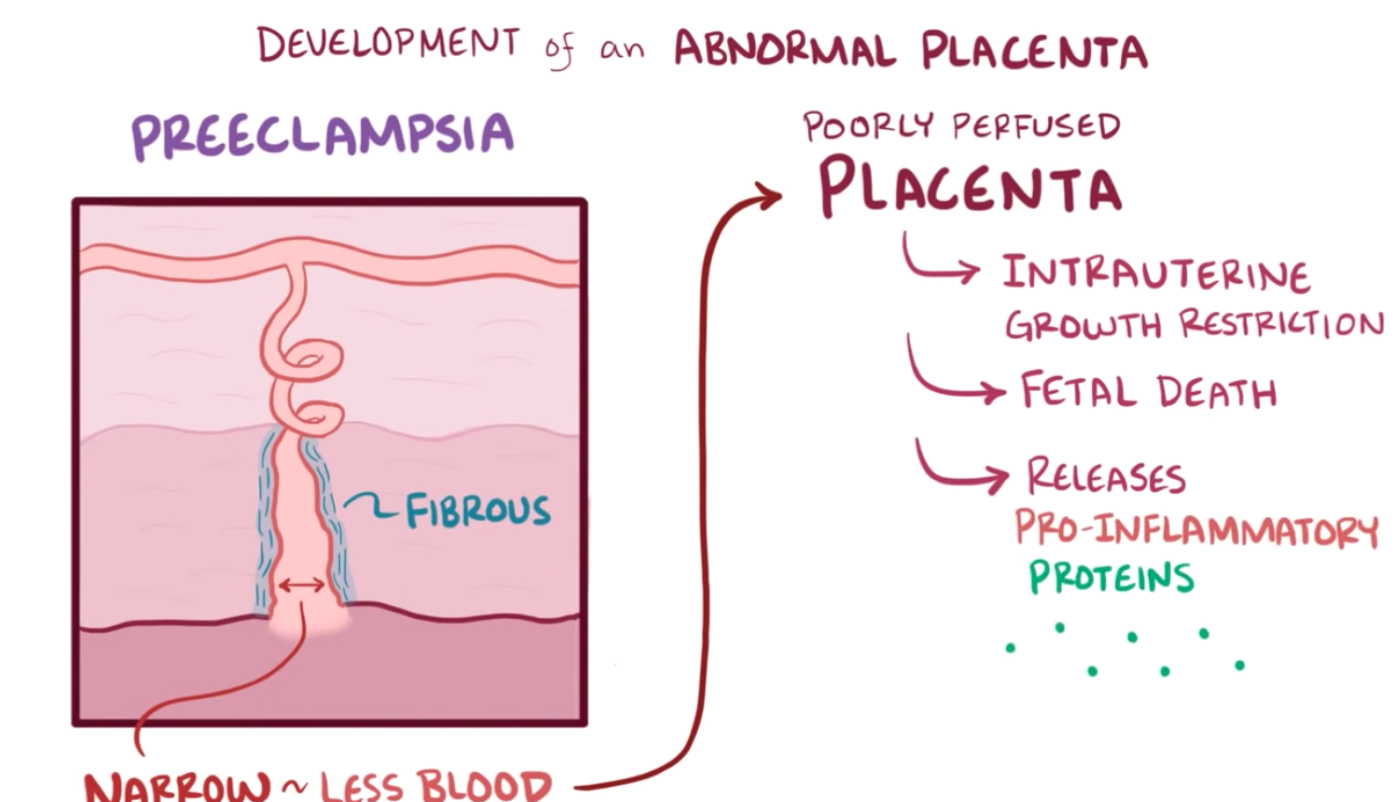 DEVELOPMENT of an ABNORMAL PLACENTA
PREECLAMPSIA
FIBROUS
NARROW ~ LESS BLOOD
POORLY PERFUSED
PLACENTA
INTRAUTERINE
GROWTH RESTRICTION
FETAL DEATH
RELEASES
PRO-INFLAMMATORY
PROTEINS